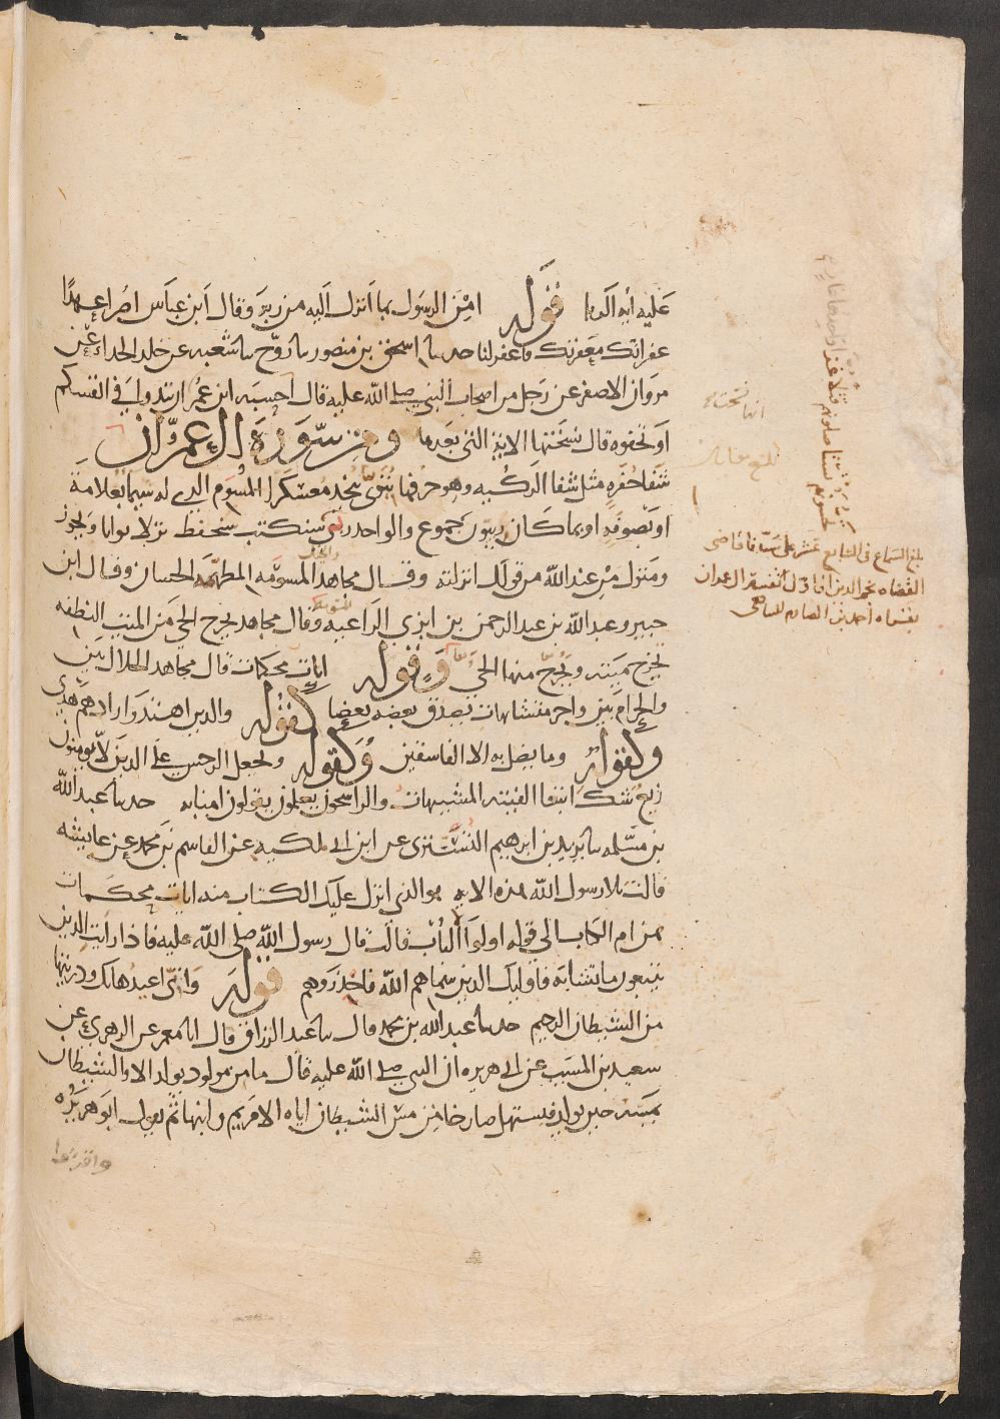 عليه اية الربا قوله امن الرسول بما انزل اليه من ربه وقال ابن عباس اصرا عهدا
غفرانك مغفرتك فاغفر لنا حدثنا اسحق بن منصور ثنا روح ثنا شعبه عن خلد الحذاء عن
مروان الاصفر عن رجل من اصحاب النبي صلى الله عليه قال احسبه ابن عمر ان تبدوا ما في انفسكم
او تخفوه قال نسختها الاية التي بعدها ومن سورة ال عمران
شفا حفره مثل شفا الركيه وهو حرفها تبوى تتخذ معسكرا المسوم الذي له سيما بعلامة
او بصوفة او بما كان ربيون جموع والواحد ربي سنكتب سنحفظ نزلا ثوابا ويجوز
ومنزل من عند الله من قولك انزلته وقال مجاهد والخيل المسومه المطهمه الحسان وقال ابن
جبير وعبد الله بن عبد الرحمن بن ابزى الراعيه وقال مجاهد يخرج الحي من الميت النطفه
تخرج ميته ويخرج منها الحي وقوله ايات محكمات قال مجاهد الحلال
والحرام واخر متشابهات يصدق بعضه بعضا كقوله والذين اهتدوا زادهم هدى
وكقوله وما يضل به الا الفاسقين وكقوله ويجعل الرجس على الذين لا يومنون
زيغ شك ابتغا الفتنه المشبهات والراسخون يعلمون يقولون امنا به حدثنا عبد الله
بن مسلمه ثنا يزيد بن ابرهيم التستري عن ابن ابي مليكه عن القاسم بن محمد عن عايشه
قالت تلا رسول الله هذه الايه هو الذي انزل عليك الكتاب منه ايات محكمات
هن ام الكتاب الى قوله اولوا الالباب قالت قال رسول الله صلى الله عليه فاذا رايت الذين
يتبعون ما تشابه فاوليك الذين سماهم الله فاحذروهم قوله واني اعيذها بك وذريتها
من الشيطان الرجيم حدثنا عبد الله بن محمد قال ثنا عبد الرزاق قال انا معمر عن الزهري عن
سعيد بن المسيب عن ابي هريره ان النبي صلى الله عليه قال ما من مولود يولد الا والشيطان
يمسه حين يولد فيستهل صارخا من مس الشيطان اياه الا مريم وابنها ثم يقول ابو هريره
واقرءوا
بلغ السماع في السابع عشر على سيدنا قاضي
القضاه